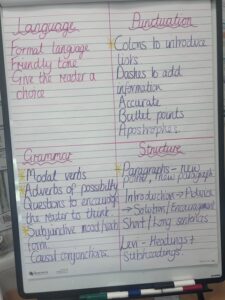 Language
Formal language
Friendly tone
Give the reader a
choice
Punctuation
Colons to introduce
lists
Dashes to add
information
Accurate
Bullet points
Apostrophes.
Grammar
Modal verbs
Adverbs of possibility
Questions to encourage
the reader to think.
Subjunctive mood/verb
form.
Causal conjunctions.
Structure
Paragraphs - new
point, new paragraph
Introduction → Advice
→ Solution/Encouragement
Short/Long sentences
Levi - Headings +
Subheadings.